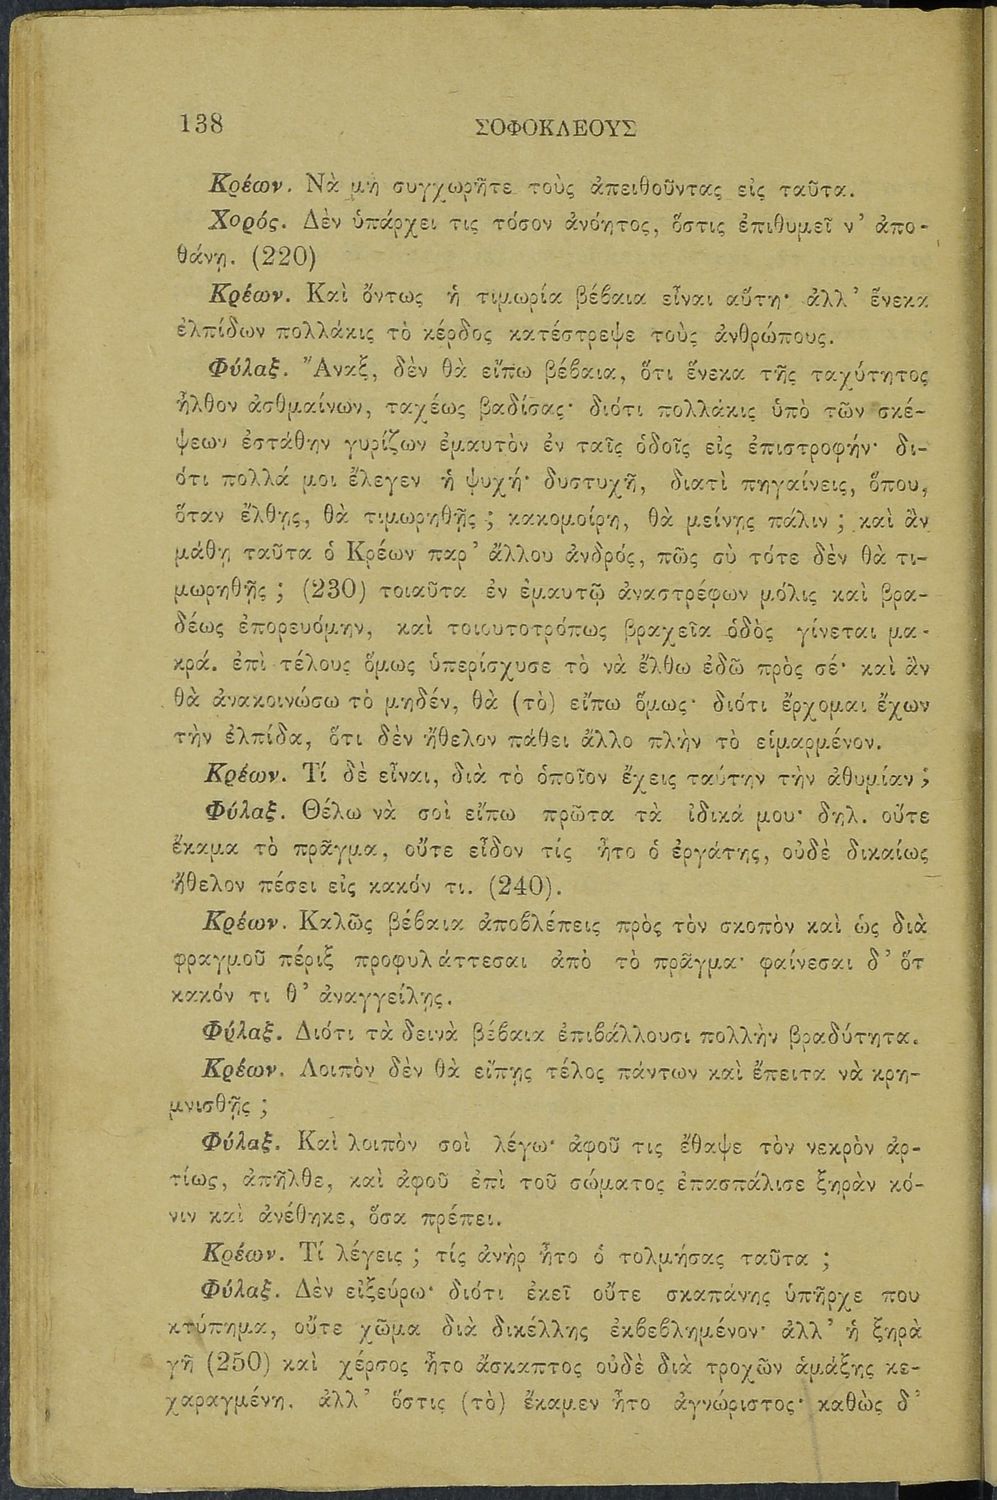 138 ΣΟΦΟΚΛΕΟΥΣ
Κρέων. Νὰ μὴ συγχωρῆτε τοὺς ἀπειθοῦντας εἰς ταῦτα.
Χορός. Δὲν ὑπάρχει τις τόσον ἀνόητος, ὅστις ἐπιθυμεῖ ν᾿ ἀπο-
θάνῃ. (220)
Κρέων. Καὶ ὄντως ἡ τιμωρία βέβαια εἶναι αὕτη· ἀλλ᾿ ἕνεκα
ἐλπίδων πολλάκις τὸ κέρδος κατέστρεψε τοὺς ἀνθρώπους.
Φύλαξ. Ἄναξ, δὲν θὰ εἴπω βέβαια, ὅτι ἕνεκα τῆς ταχύτητος
ἦλθον ἀσθμαίνων, ταχέως βαδίσας· διότι πολλάκις ὑπὸ τῶν σκέ-
ψεων ἐστάθην γυρίζων ἐμαυτὸν ἐν ταῖς ὁδοῖς εἰς ἐπιστροφήν· δι-
ότι πολλά μοι ἔλεγεν ἡ ψυχή· δυστυχῆ, διατὶ πηγαίνεις, ὅπου,
ὅταν ἔλθῃς, θὰ τιμωρηθῇς ; κακομοίρη, θὰ μείνῃς πάλιν ; καὶ ἂν
μάθῃ ταῦτα ὁ Κρέων παρ᾿ ἄλλου ἀνδρός, πῶς σὺ τότε δὲν θὰ τι-
μωρηθῇς ; (230) τοιαῦτα ἐν ἐμαυτῷ ἀναστρέφων μόλις καὶ βρα-
δέως ἐπορευόμην, καὶ τοιουτοτρόπως βραχεῖα ὁδὸς γίνεται μα-
κρά. ἐπὶ τέλους ὅμως ὑπερίσχυσε τὸ νὰ ἔλθω ἐδῶ πρὸς σέ· καὶ ἂν
θὰ ἀνακοινώσω τὸ μηδέν, θὰ (τὸ) εἴπω ὅμως· διότι ἔρχομαι ἔχων
τὴν ἐλπίδα, ὅτι δὲν ἤθελον πάθει ἄλλο πλὴν τὸ εἱμαρμένον.
Κρέων. Τί δὲ εἶναι, διὰ τὸ ὁποῖον ἔχεις ταύτην τὴν ἀθυμίαν ;
Φύλαξ. Θέλω νὰ σοὶ εἴπω πρῶτα τὰ ἰδικά μου· δηλ. οὔτε
ἔκαμα τὸ πρᾶγμα, οὔτε εἶδον τίς ἦτο ὁ ἐργάτης, οὐδὲ δικαίως
ἤθελον πέσει εἰς κακόν τι. (240).
Κρέων. Καλῶς βέβαια ἀποβλέπεις πρὸς τὸν σκοπὸν καὶ ὡς διὰ
φραγμοῦ πέριξ προφυλάττεσαι ἀπὸ τὸ πρᾶγμα· φαίνεσαι δ᾿ ὅτ
κακόν τι θ᾿ ἀναγγείλῃς.
Φύλαξ. Διότι τὰ δεινὰ βέβαια ἐπιβάλλουσι πολλὴν βραδύτητα.
Κρέων. Λοιπὸν δὲν θὰ εἴπῃς τέλος πάντων καὶ ἔπειτα νὰ κρη-
μνισθῇς ;
Φύλαξ. Καὶ λοιπὸν σοὶ λέγω· ἀφοῦ τις ἔθαψε τὸν νεκρὸν ἀρ-
τίως, ἀπῆλθε, καὶ ἀφοῦ ἐπὶ τοῦ σώματος ἐπασπάλισε ξηρὰν κό-
νιν καὶ ἀνέθηκε, ὅσα πρέπει.
Κρέων. Τί λέγεις ; τίς ἀνὴρ ἦτο ὁ τολμήσας ταῦτα ;
Φύλαξ. Δὲν εἰξεύρω· διότι ἐκεῖ οὔτε σκαπάνης ὑπῆρχε που
κτύπημα, οὔτε χῶμα διὰ δικέλλης ἐκβεβλημένον· ἀλλ᾿ ἡ ξηρὰ
γῆ (250) καὶ χέρσος ἦτο ἄσκαπτος οὐδὲ διὰ τροχῶν ἁμάξης κε-
χαραγμένη. ἀλλ᾿ ὅστις (τὸ) ἔκαμεν ἦτο ἀγνώριστος· καθὼς δ᾿